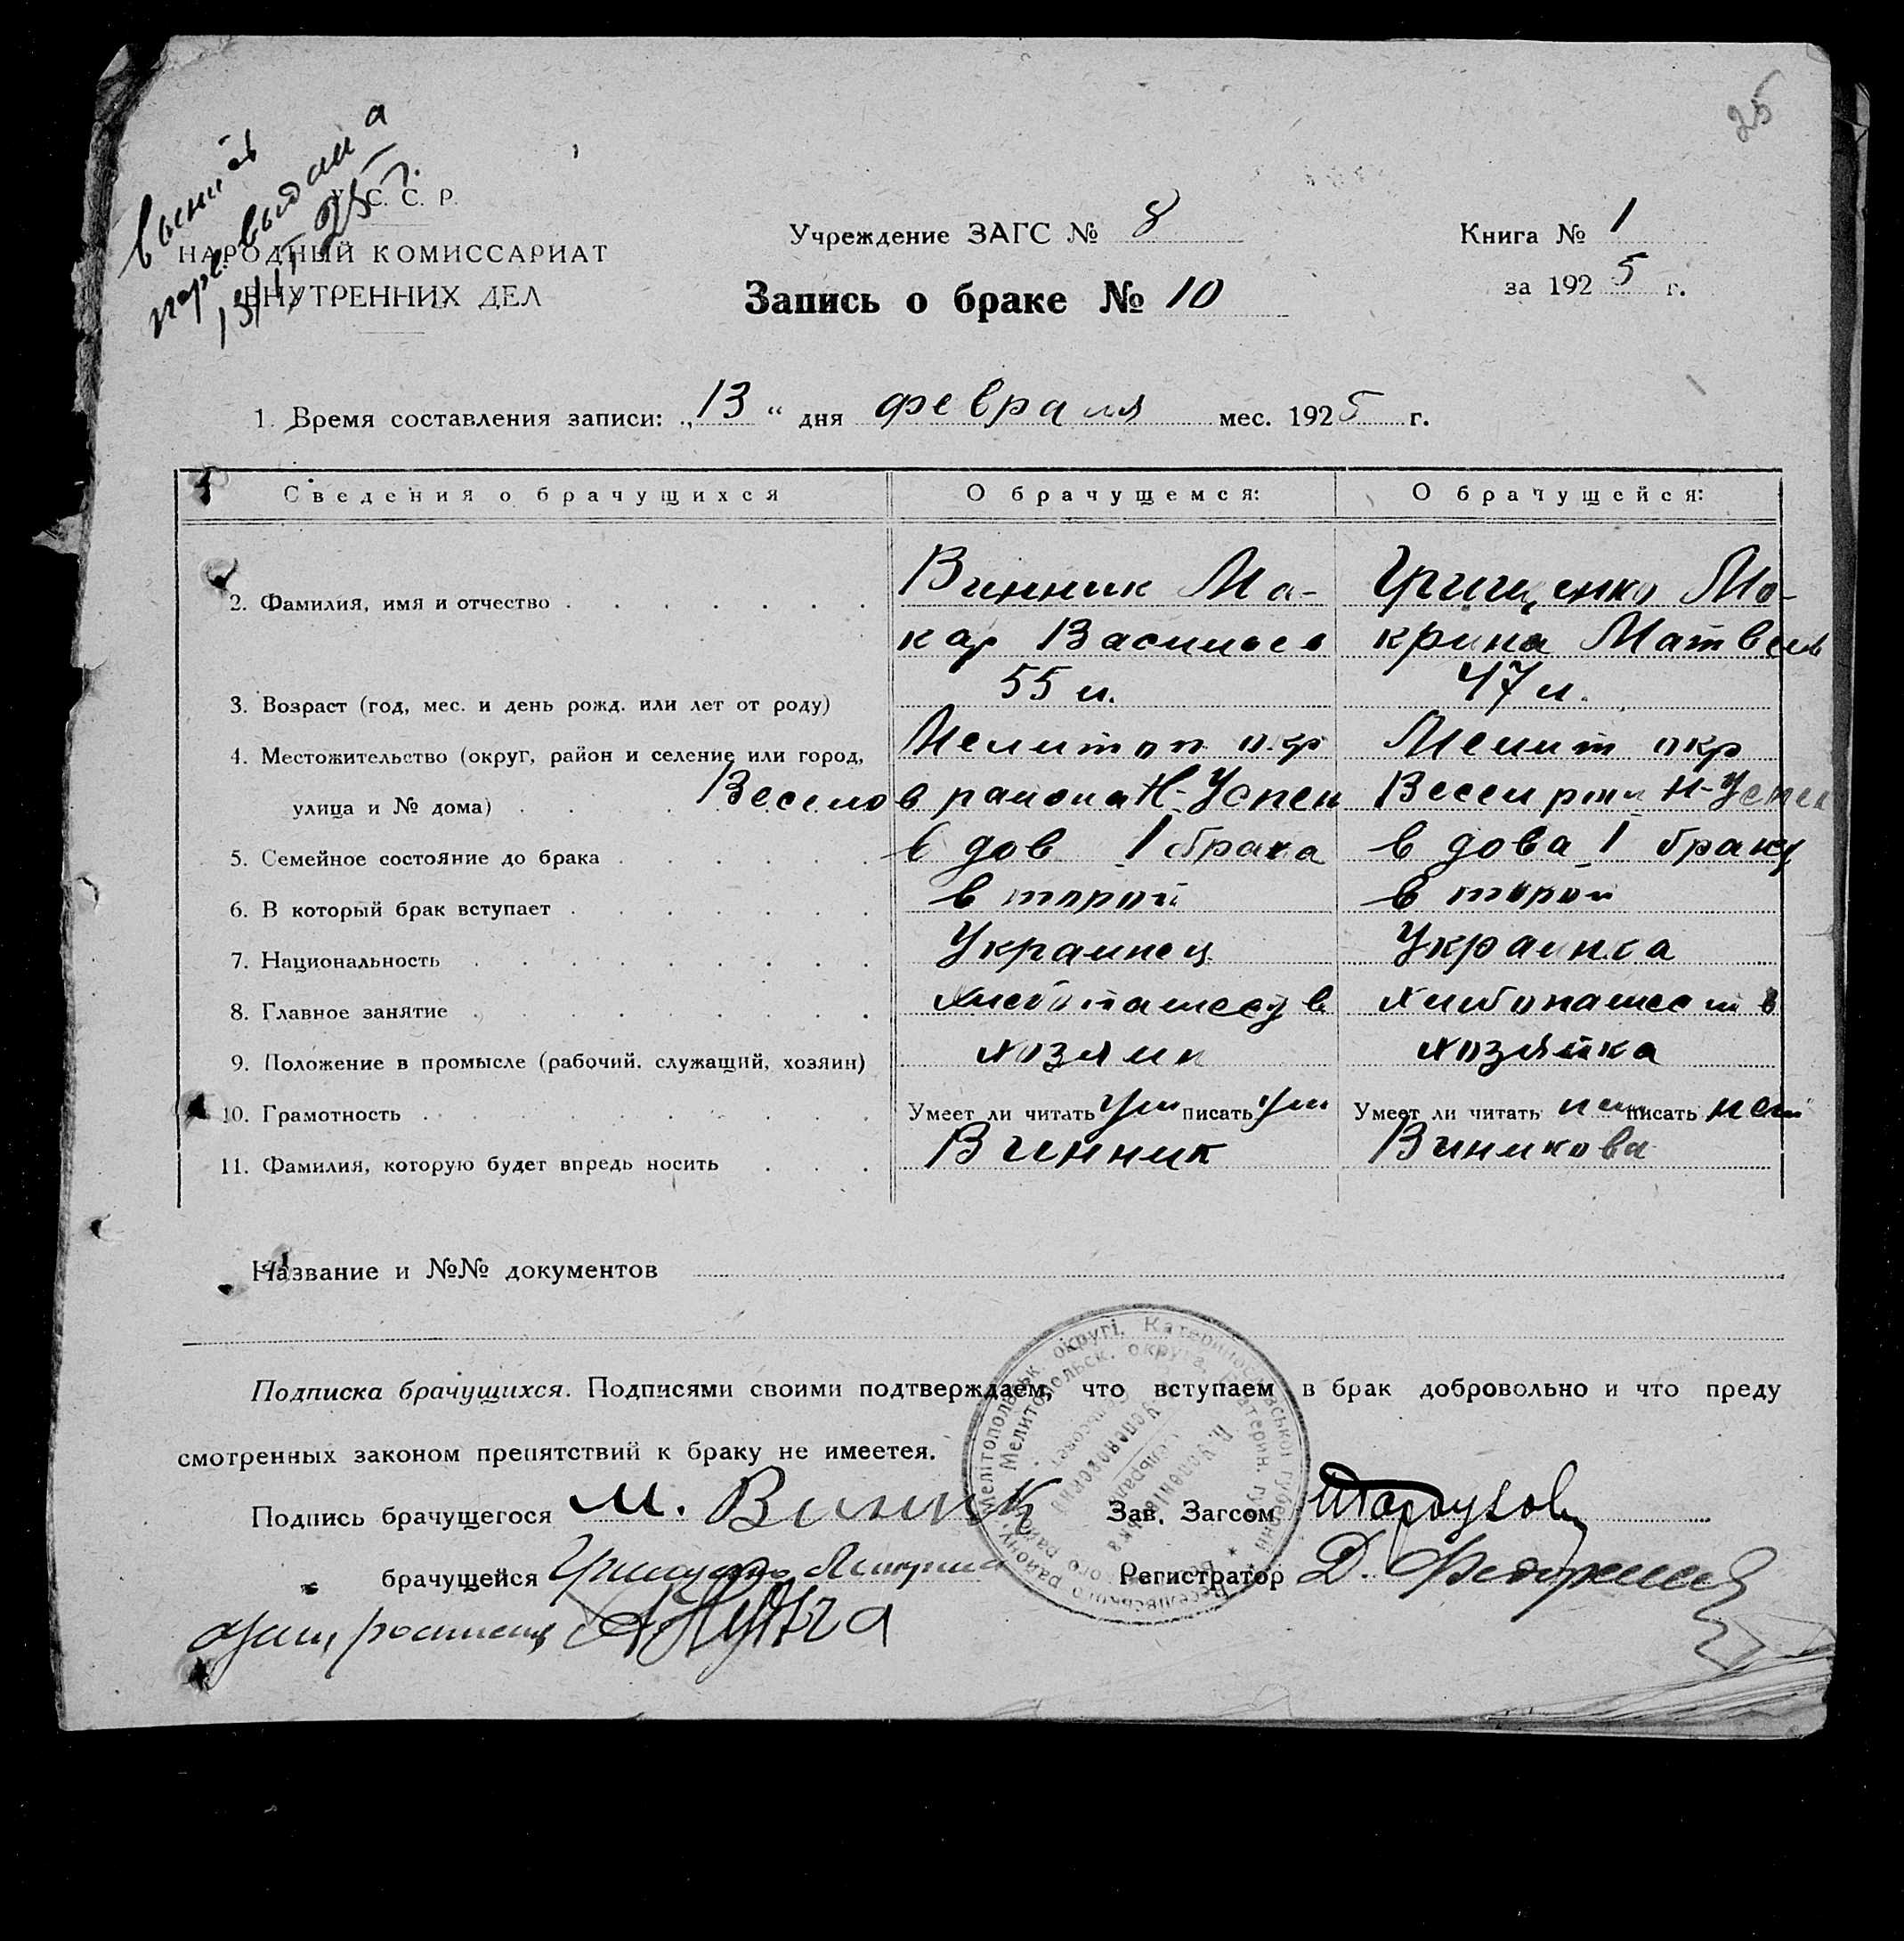 25
У. С. С. Р.
НАРОДНЫЙ КОМИССАРИАТ
ВНУТРЕННИХ ДЕЛ
выдана
Учреждение ЗАГС № 8
Книга № 1
за 1925 г.
Запись о браке № 10
1. Время составления записи: „13“ дня февраля мес. 1925 г.
Сведения о брачущихся О брачущемся: О брачущейся:
2. Фамилия, имя и отчество Винник Ма- Грищенко Ма-
кар Васильев крина Матвеев
3. Возраст (год, мес. и день рожд. или лет от роду) 55 л. 47 л.
4. Местожительство (округ, район и селение или город, Мелитоп окр Мелит окр
улица и № дома) Веселов района Н-Успен Весел Н-Успен
5. Семейное состояние до брака вдов 1 брака вдова 1 брака
6. В который брак вступает второй второй
7. Национальность Украинец Украинка
8. Главное занятие хлебопашеств
9. Положение в промысле (рабочий, служащий, хозяин) хозяин хозяйка
10. Грамотность Умеет ли читать ум писать ум Умеет ли читать нет писать нет
11. Фамилия, которую будет впредь носить Винник Виникова
Название и №№ документов
Подписка брачущихся. Подписями своими подтверждаем, что вступаем в брак добровольно и что преду
смотренных законом препятствий к браку не имеетея.
Подпись брачущегося М. Виник Зав. Загсом
„ брачущейся Грищенко Регистратор Д.